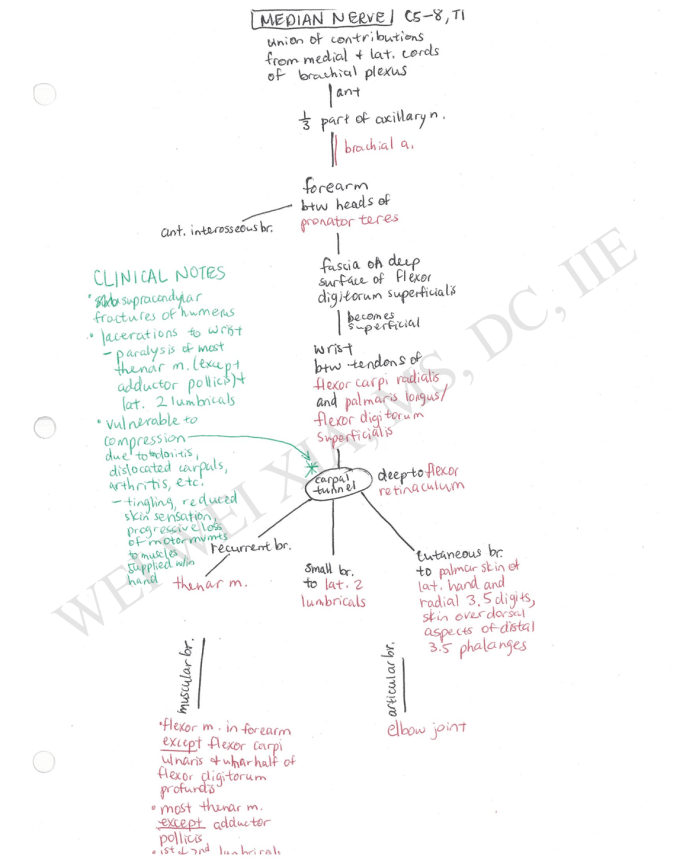 MEDIAN NERVE C5-8, T1
union of contributions
from medial + lat. cords
of brachial plexus
ant
1/3 part of axillary n.
brachial a.
forearm
btw heads of
pronator teres
ant. interosseous br.
fascia on deep
surface of flexor
digitorum superficialis
becomes
superficial
wrist
btw tendons of
flexor carpi radialis
and palmaris longus/
flexor digitorum
superficialis
CLINICAL NOTES
• supracondylar
fractures of humerus
• lacerations to wrist
- paralysis of most
thenar m. (except
adductor pollicis) +
lat. 2 lumbricals
• vulnerable to
compression
due to
dislocated carpals,
arthritis, etc.
- tingling, reduced
skin sensation,
progressive loss
of motor mvmts
to muscles
supplied w/in
hand
carpal
tunnel
deep to flexor
retinaculum
recurrent br.
thenar m.
small br.
to lat. 2
lumbricals
cutaneous br.
to palmar skin of
lat. hand and
radial 3.5 digits,
skin over dorsal
aspects of distal
3.5 phalanges
muscular br.
• flexor m. in forearm
except flexor carpi
ulnaris + ulnar half of
flexor digitorum
profundis
• most thenar m.
except adductor
pollicis
• 1st + 2nd lumbricals
articular br.
elbow joint
WEI WEI XIA, MS, DC, IIE